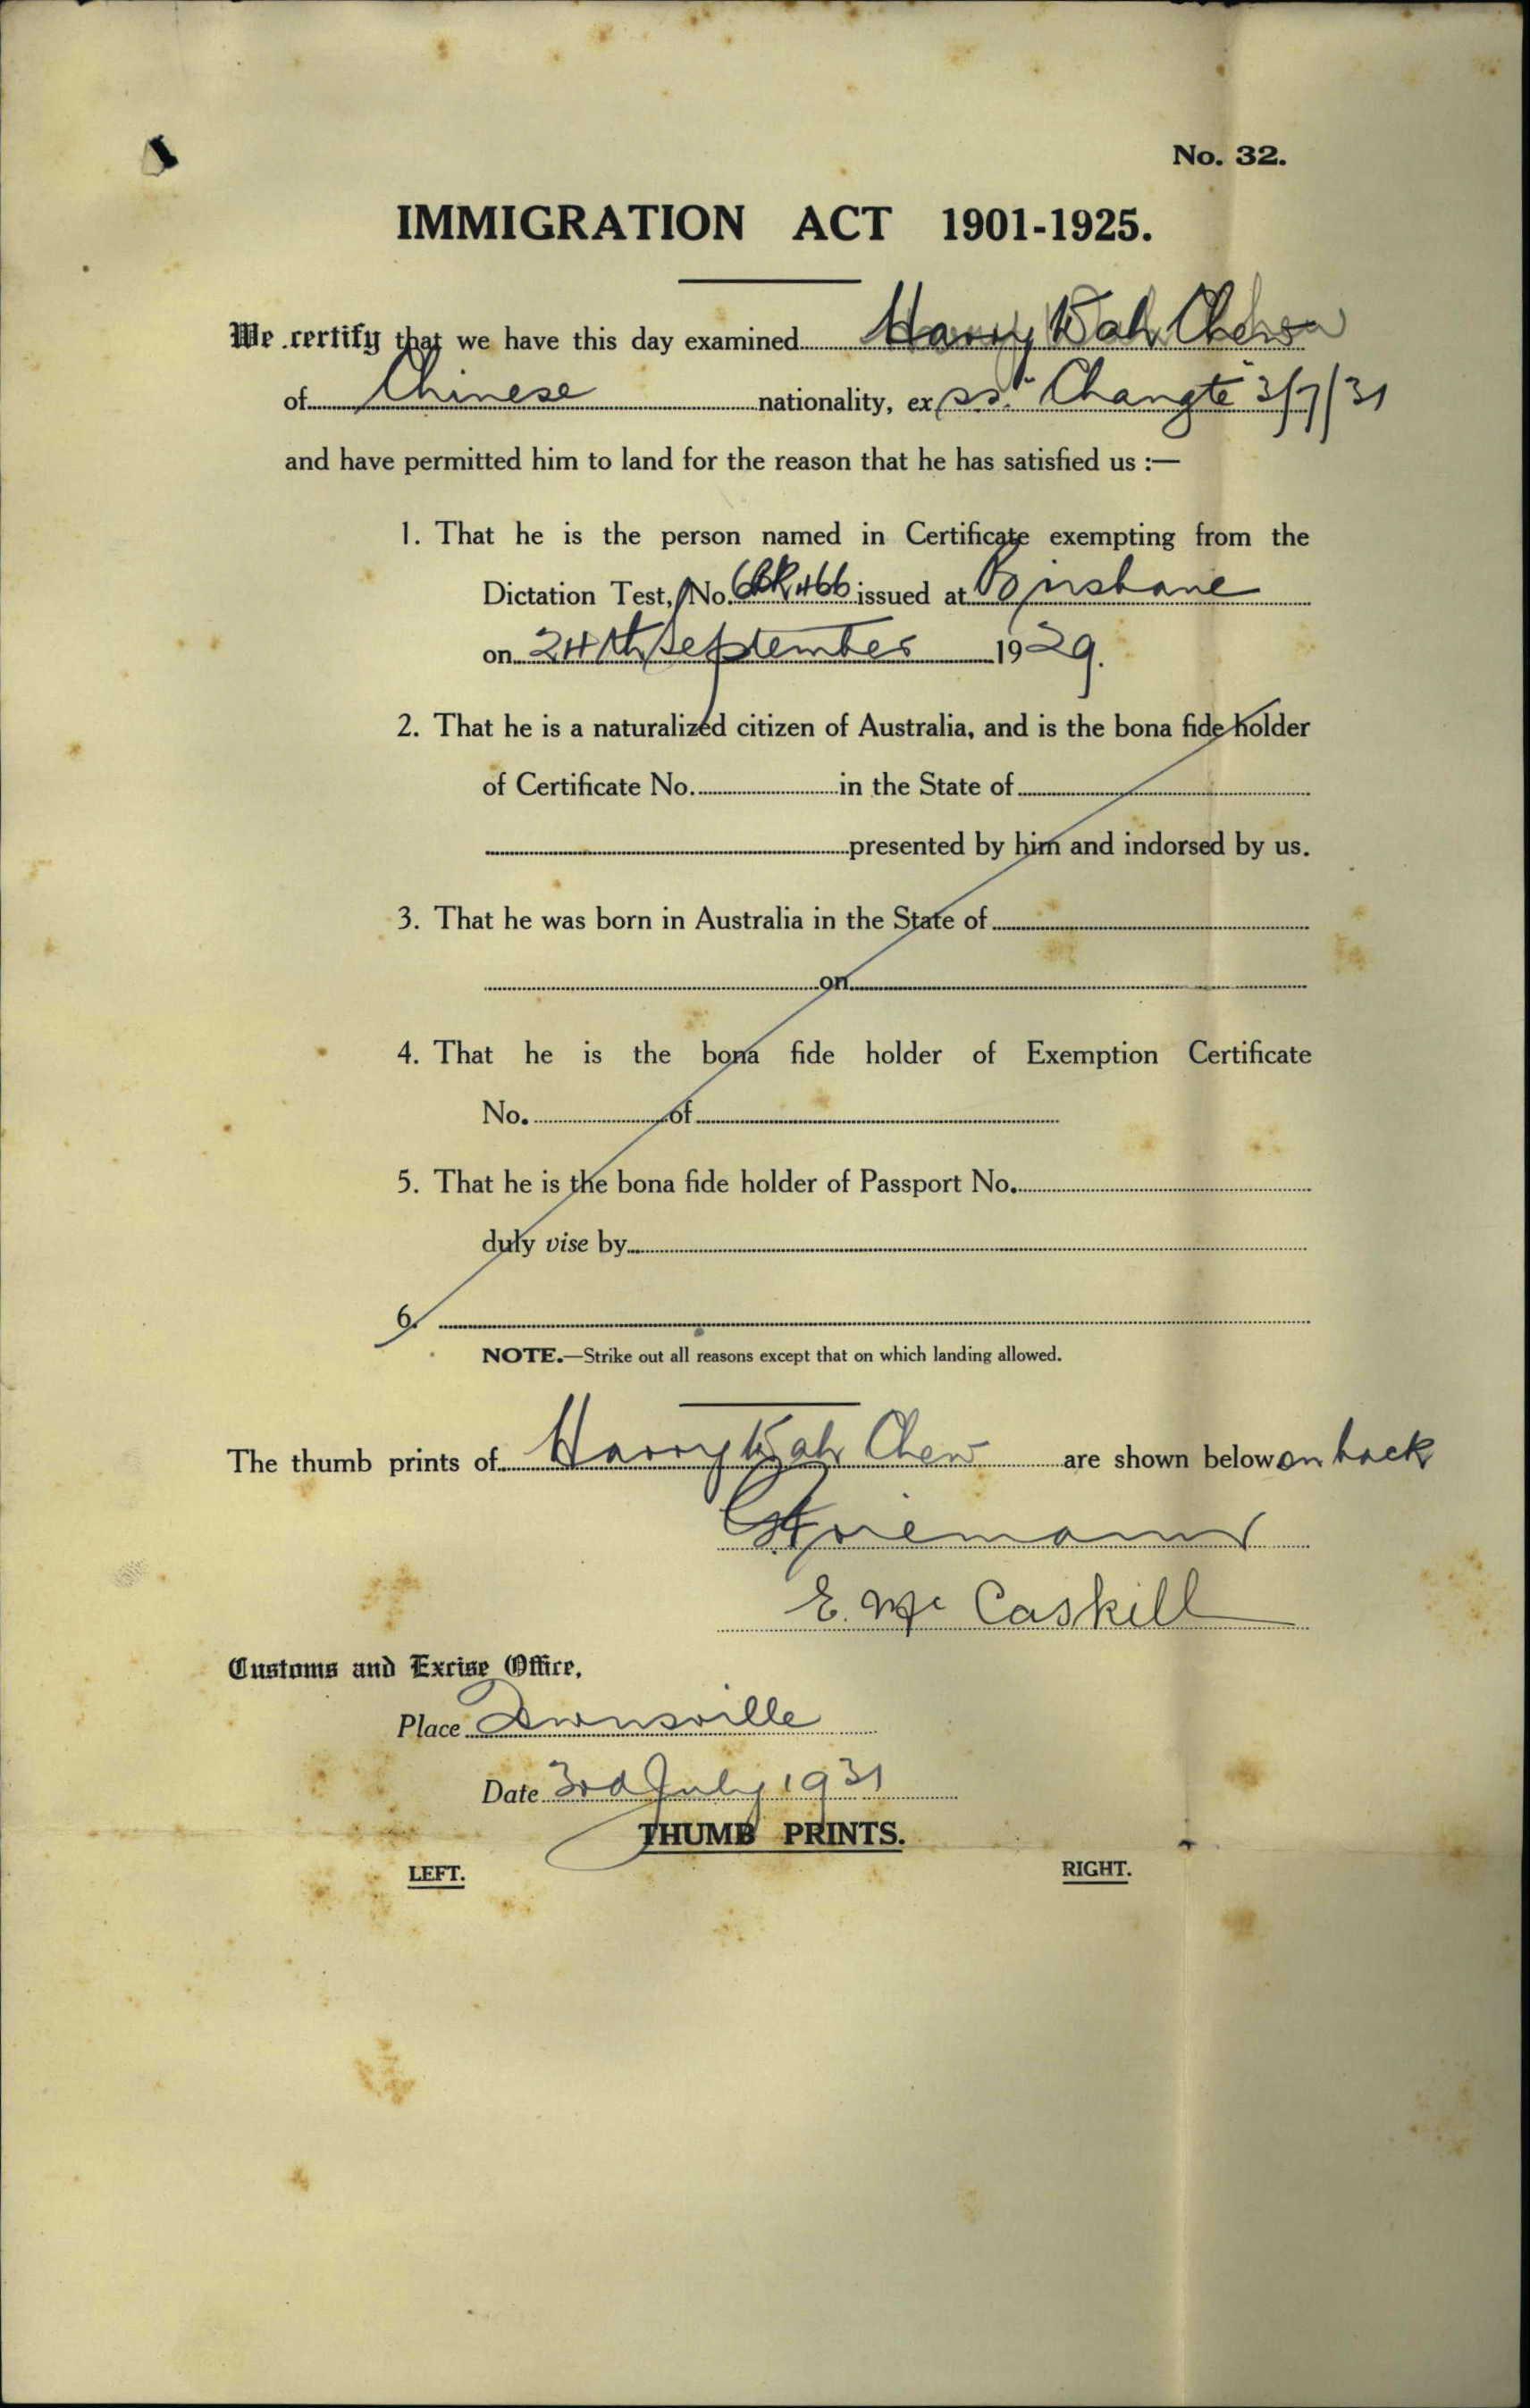 No. 32.
IMMIGRATION ACT 1901-1925.
We certify that we have this day examined Harry Wah Chew
of Chinese nationality, ex ss. "Changte" 3/7/31
and have permitted him to land for the reason that he has satisfied us :—
1. That he is the person named in Certificate exempting from the
Dictation Test, No. 466 issued at Brisbane
on 24th September 1929.
2. That he is a naturalized citizen of Australia, and is the bona fide holder
of Certificate No. in the State of
presented by him and indorsed by us.
3. That he was born in Australia in the State of
on
4. That he is the bona fide holder of Exemption Certificate
No. of
5. That he is the bona fide holder of Passport No.
duly vise by
6.
NOTE.—Strike out all reasons except that on which landing allowed.
The thumb prints of Harry Wah Chew are shown below on back
E. Mc Caskill
Customs and Excise Office,
Place Townsville
Date 3rd July 1931
THUMB PRINTS.
LEFT. RIGHT.